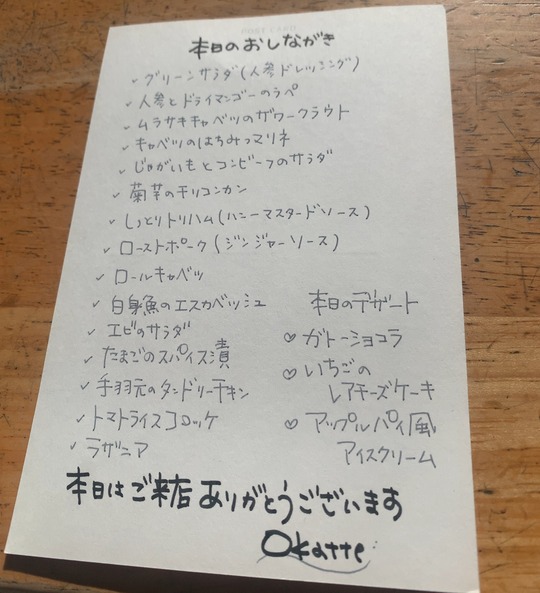 POST CARD
本日のおしながき
✓ グリーンサラダ(人参ドレッシング)
✓ 人参とドライマンゴーのラペ
✓ ムラサキキャベツのザワークラウト
✓ キャベツのはちみつマリネ
✓ じゃがいもとコンビーフのサラダ
✓ 菊芋のチリコンカン
✓ しっとりトリハム(ハニーマスタードソース)
✓ ローストポーク(ジンジャーソース)
✓ ロールキャベツ
✓ 白身魚のエスカベッシュ
✓ エビのサラダ
✓ たまごのスパイス漬
✓ 手羽元のタンドリーチキン
✓ トマトライスコロッケ
✓ ラザニア
本日のデザート
♡ ガトーショコラ
♡ いちごの
レアチーズケーキ
♡ アップルパイ風
アイスクリーム
本日はご来店ありがとうございます
Okatte